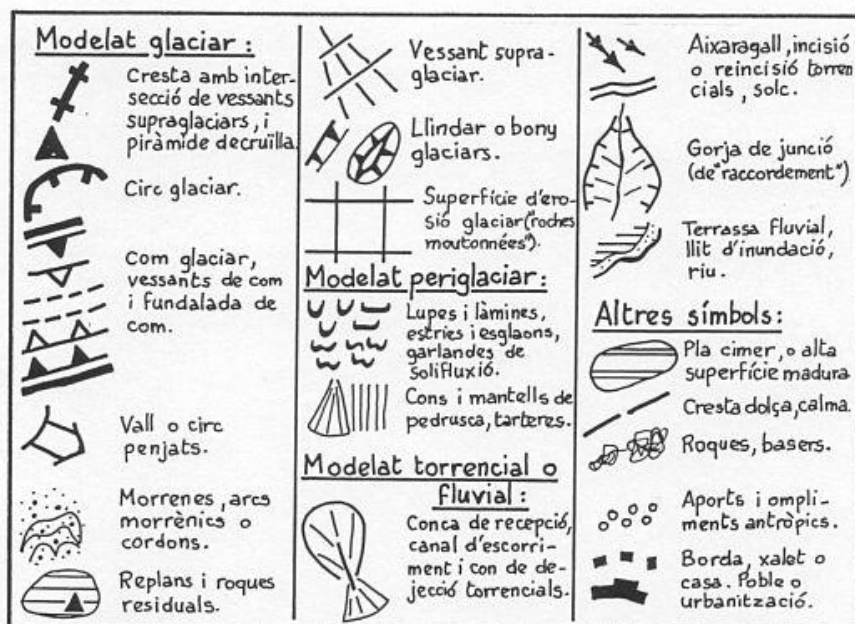 Modelat glaciar :
Cresta amb inter-
secció de vessants
supraglaciars, i
piràmide decruïlla.
Circ glaciar.
Com glaciar,
vessants de com
i fundalada de
com.
Vall o circ
penjats.
Morrenes, arcs
morrènics o
cordons.
Replans i roques
residuals.
Vessant supra-
glaciar.
Llindar o bony
glaciars.
Superfície d'ero-
sió glaciar ("roches
moutonnées").
Modelat periglaciar:
Lupes i làmines,
estries i esglaons,
garlandes de
solifluxió.
Cons i mantells de
pedrusca, tarteres.
Modelat torrencial o
fluvial :
Conca de recepció,
canal d'escorri-
ment i con de de-
jecció torrencials.
Aixaragall, incisió
o reincisió torren
cials, solc.
Gorja de junció
(de "raccordement")
Terrassa fluvial,
llit d'inundació,
riu.
Altres símbols:
Pla cimer, o alta
superfície madura
Cresta dolça, calma.
Roques, basers.
Aports i ompli-
ments antròpics.
Borda, xalet o
casa. Poble o
urbanització.